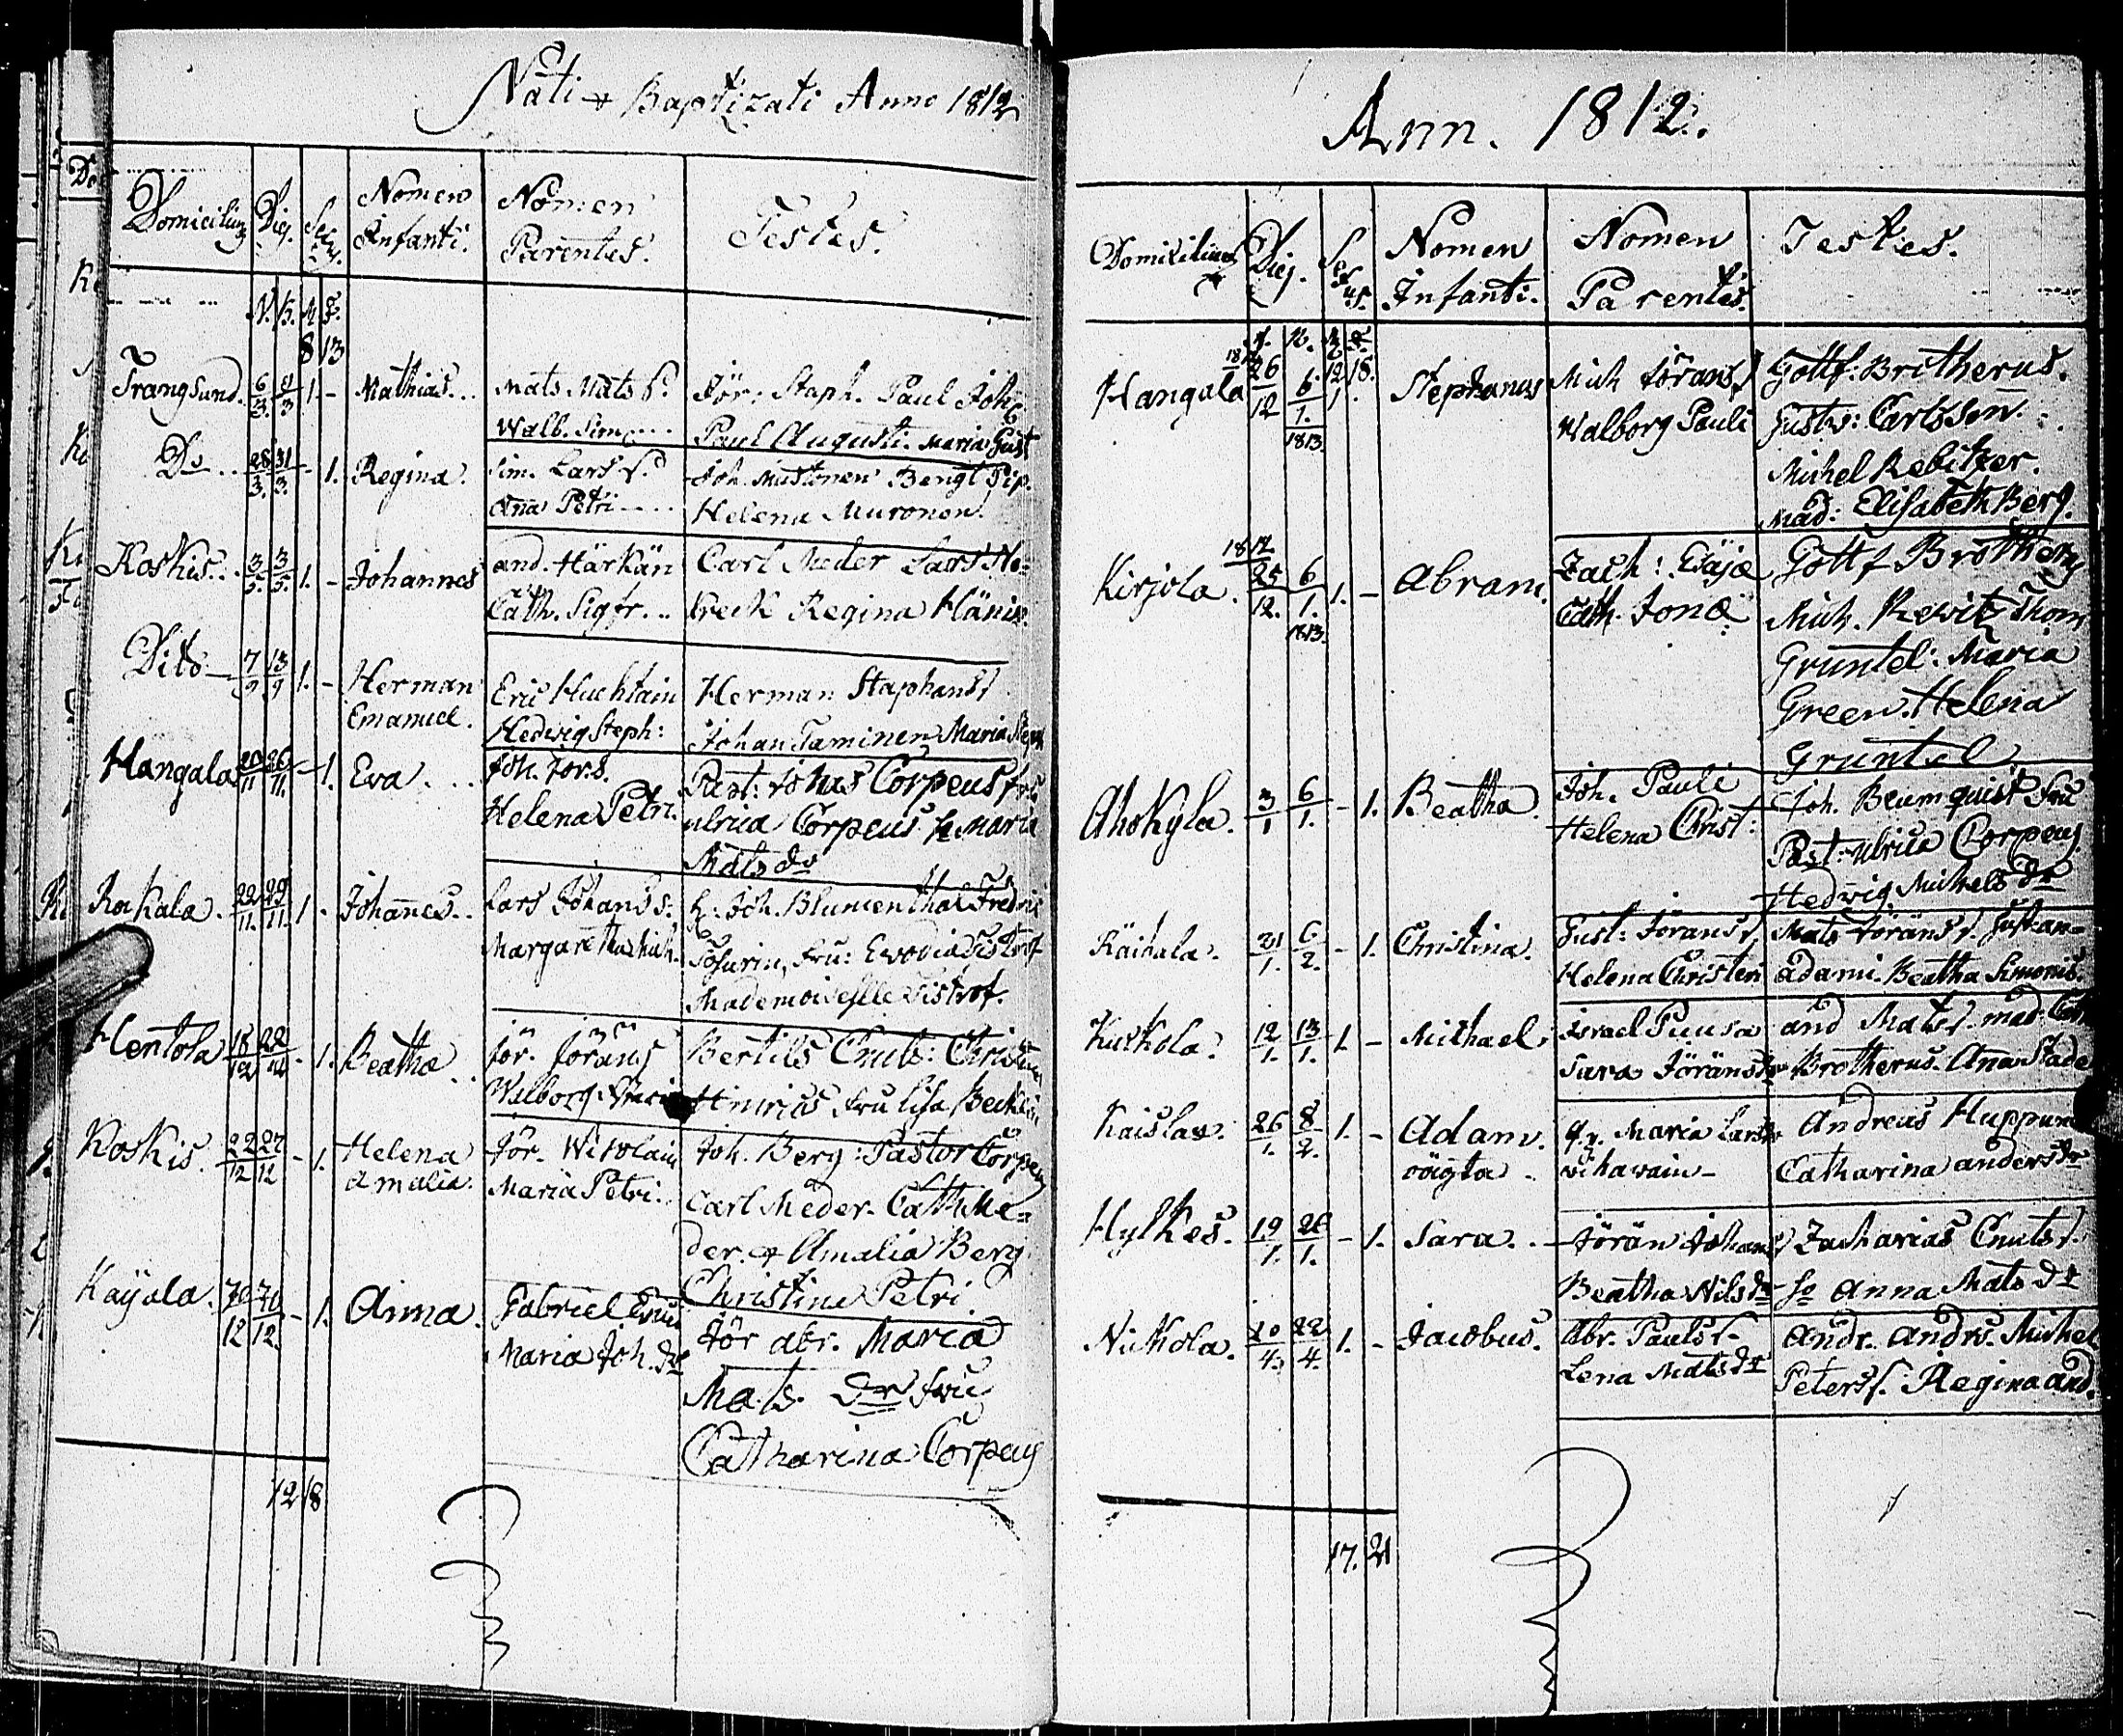 Nati & Baptizati Anno 1812
Domicilium Dies. Sexus. Nomen Infanti. Nomen Parentes. Testes.
N. B. M. F.
8 13
Trangsund. 6/3. /3 1 - Mathias. Mats Mats S. Jör. Staph. Paul Joh.
Walb. Sim. Paul Augusti. Maria Gust
Do 28/3. 31/3. - 1. Regina. Sim. Lars S. Joh. Mustonen Bengt Pip.
Ana Petri Helena Muronen.
Koskis. 3/5. 3/5. 1. - Johannes and. Härkän Carl Meder Lars
Cath. Sigfr. Regina Hänin.
Dito 7/9 13/9 1. - Herman Eric Huchtain Herman Staphans
Emanuel. Hedwig Steph: Johan Taminen Maria
Hangala 20/11 26/11. - 1. Eva. Joh. Jör.s. Past: Johas Corpeus fru
Helena Petri. ulrica Corpeus Maria
Mats dr
Rokala. 22/11. 29/11. 1. - Johannes. Lars Johans s. h. Joh. Blumenthal Fredric
Margaretha Mich. Fru: Evodia Sistrof
Mademoiselle Sistrof.
Hentola 18/12 22/12 - 1. Beatha Jör. Jörans Bertils Cnuts: Christin
Walborg Hinrics Fru Lisa
Koskis. 22/12 27/12 - 1. Helena Jör. Witolain Joh. Berg: Pastor Corpeus
Amalia. Maria Petri. Carl Meder. Cath Me=
der. & Amalia Berg
Christina Petri
Kayala. /12 /12. - 1. Anna. Gabriel Jör abr. Maria
Maria Joh. dr Mats. Dr fru
Catharina Corpeus
12 18
Ann. 1812.
Domicilium Dies. Sexus. Nomen Infanti. Nomen Parentes. Testes.
N. B. M. F.
12 18.
Hangala 1812 26/12 6/1. 1813. 1. Stephanus Mich Jörans Gottf: Brotherus.
Walborg Pauli Gustv: Carlsson.
Michel Rebitzer.
Mad: Elisabeth Berg.
Kirjola. 1812. 25/12. 6/1. 1813. 1. - Abram. Zach: Esajæ Gottf Brotherus
Cath. Jonæ Mich. Rewitz Thom
Gruntel. Maria
Green. Helena
Gruntel
Ahokyla. 3/1 6/1. - 1. Beatha. Joh. Pauli Joh. Beumquist fru
Helena Christ: Past: Ulrica Corpeus
Hedwig Michels dr
Räihala. 21/1. 6/2. - 1. Christina. Gust: Jörans Mats Jörans
Helena Christeri adami. Beatha Simonis
Kurkola. 12/1. 13/1. 1. - Michael. Israel Puusa and Mats mad:
Sara Jöransdr Brotherus. Ana Stade
Kaislax. 26/1. 8/2. 1. - Adam. q.v. Maria Larsdr Andreus Huppun
oägta wihawain Catharina anders dr
Hylkes. 19/1. 26/1. - 1. Sara. Jörän Johans Zacharias Cnuts.
Beatha Nils dr Anna Mats dr
Nikkola. 20/4. 22/4. 1. - Jacobus. Abr. Pauls Andr. Andrs. Michel
Lena Mats dr Peters. Regina And.
17. 21